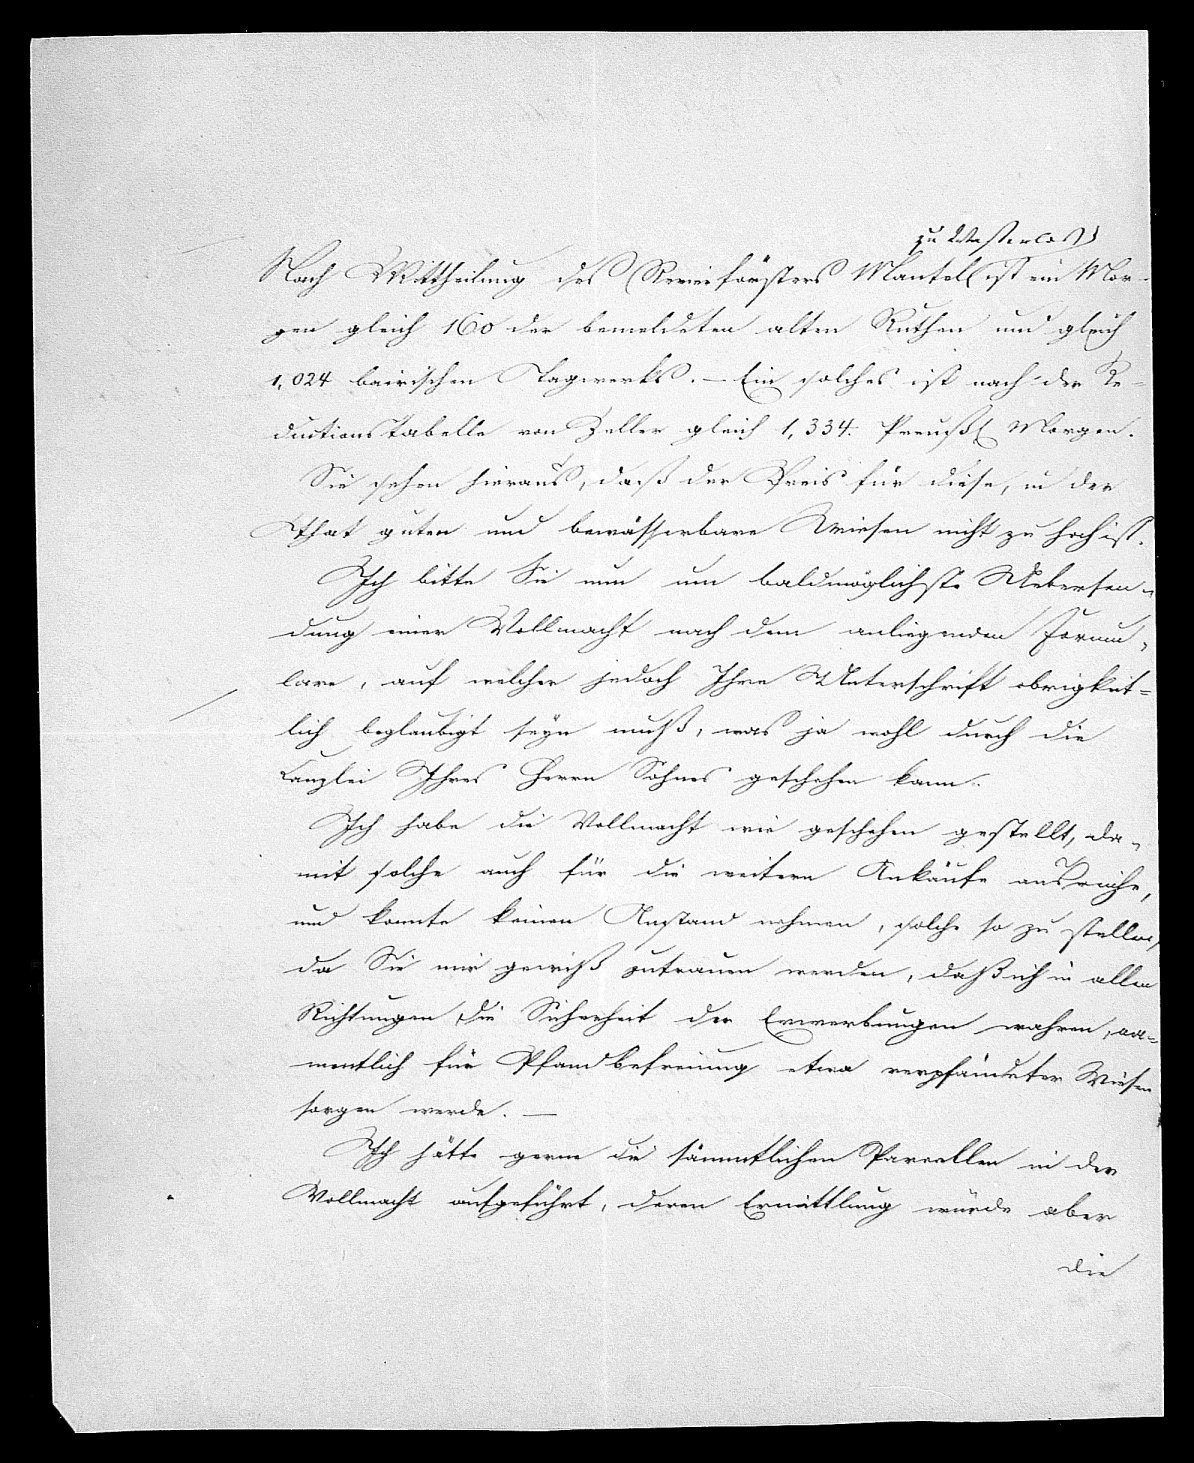 zu Westerloh
Nach Mittheilung des Revierförsters Mantel ist ein Mor-
gen gleich 160 der bemeldeten alten Ruthen und gleich
1,024 bairischen Tagwerks. — Ein solches ist nach der Re-
ductionstabelle von Zeller gleich 1,334. Preuß. Morgen.
Sie sehen hieraus, daß der Preis für diese, in der
That guten und bewässerbare Wiesen nicht zu hoch ist.
Ich bitte Sie nun um baldmöglichste Uebersen-
dung einer Vollmacht nach dem anliegenden Formu-
lare, auf welcher jedoch Ihre Unterschrift obrigkeit-
lich beglaubigt seyn muß, was ja wohl durch die
Canzlei Ihres Herrn Sohnes geschehen kann.
Ich habe die Vollmacht wie geschehen gestellt, da-
mit solche auch für die weitern Ankäufe ausreiche,
und konnte keinen Anstand nehmen, solche so zu stellen,
da Sie mir gewiß zutrauen werden, daß ich in allen
Richtungen die Sicherheit der Erwerbungen wahren, na-
mentlich für Pfandbefreiung etwa verpfändeter Wiesen
sorgen werde. —
Ich hätte gerne die sämmtlichen Parcellen in der
Vollmacht aufgeführt, deren Ermittlung würde aber
die